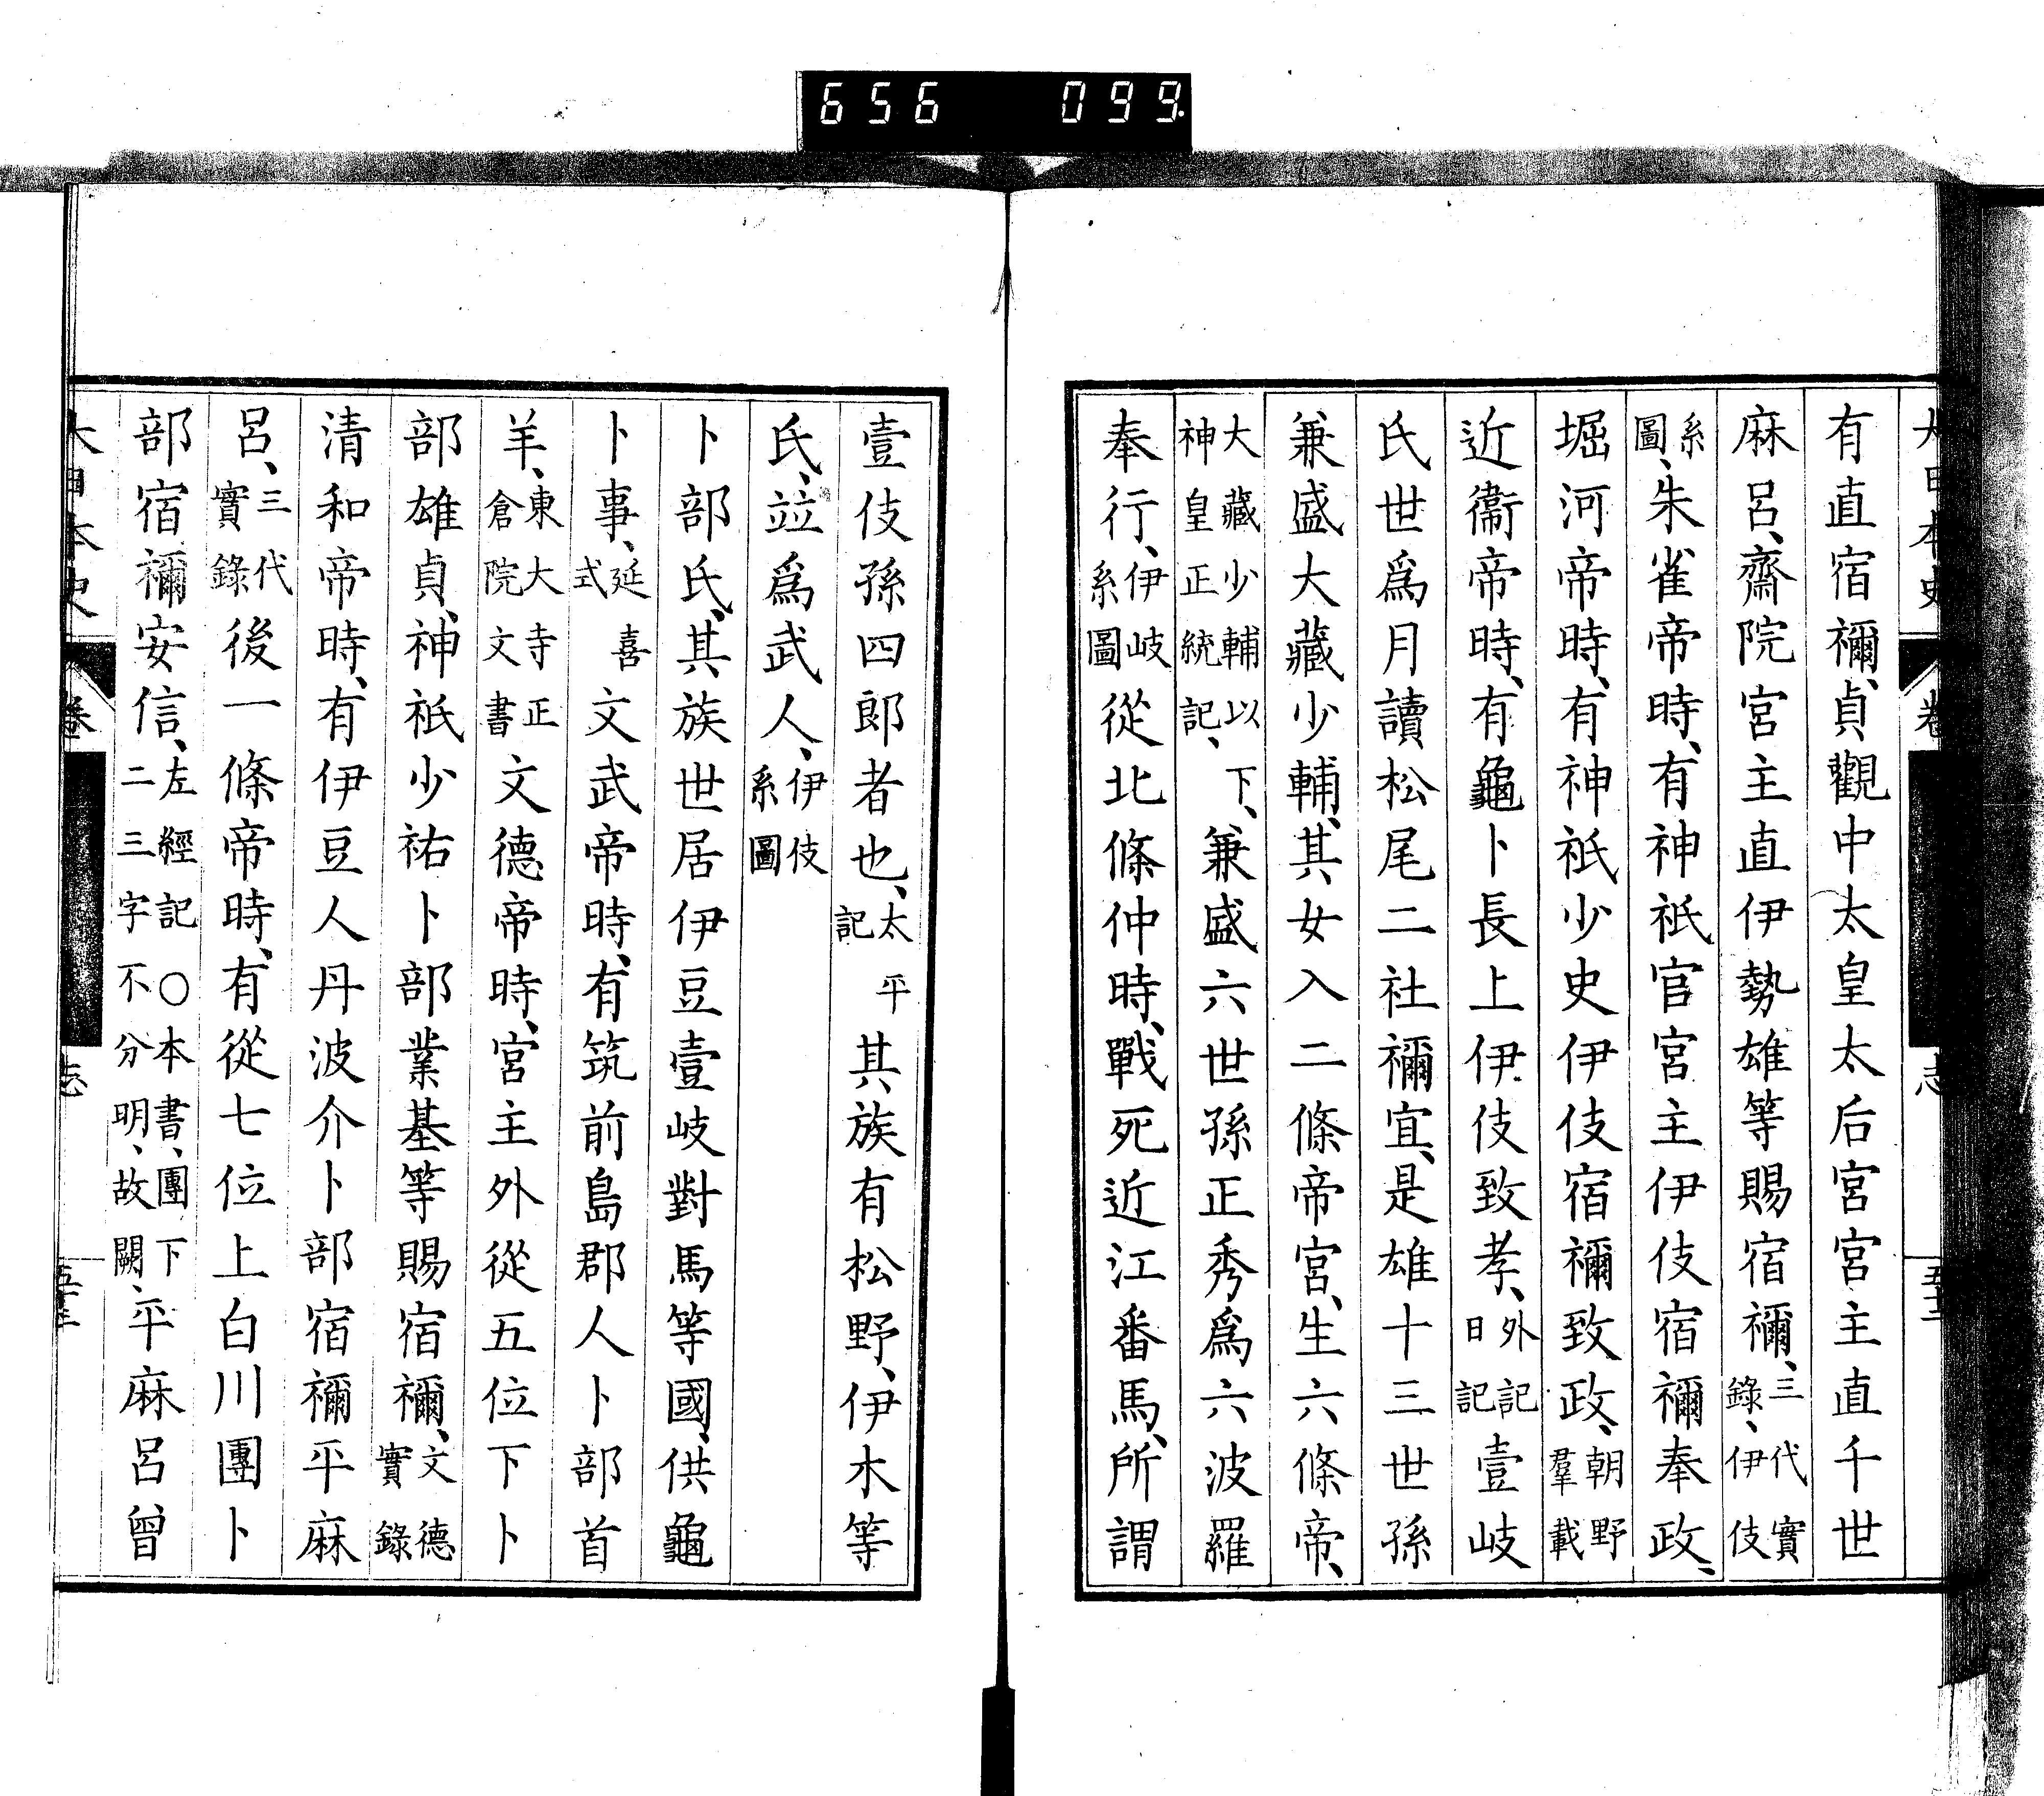 656 099
大日本史 卷 志
有直宿禰、貞觀中太皇太后宮宮主直千世
麻呂、齋院宮主直伊勢雄等賜宿禰、三代實錄、伊伎
系圖、朱雀帝時、有神祇官宮主伊伎宿禰奉政、
堀河帝時、有神祇少史伊伎宿禰致政、朝野羣載
近衞帝時、有龜卜長上伊伎致孝、外記日記壹岐
氏世爲月讀松尾二社禰宜、是雄十三世孫
兼盛大藏少輔、其女入二條帝宮、生六條帝、
大藏少輔以下、神皇正統記、兼盛六世孫正秀爲六波羅
奉行、伊岐系圖從北條仲時、戰死近江番馬、所謂
壹伎孫四郎者也、太平記其族有松野、伊木等
氏、竝爲武人、伊伎系圖
卜部氏、其族世居伊豆壹岐對馬等國、供龜
卜事、延喜式文武帝時、有筑前島郡人卜部首
羊、東大寺正倉院文書文德帝時、宮主外從五位下卜
部雄貞、神祇少祐卜部業基等賜宿禰、文德實錄
清和帝時、有伊豆人丹波介卜部宿禰平麻
呂、三代實錄後一條帝時、有從七位上白川團卜
部宿禰安信、左經記〇本書、團下二三字不分明、故闕、平麻呂曾
大日本史 卷 志